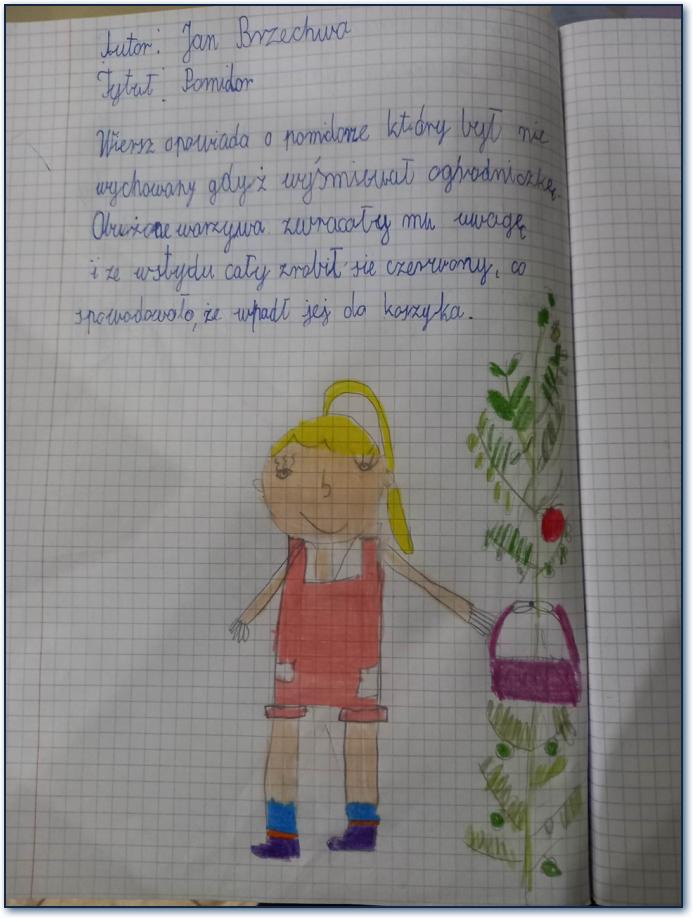 Autor: Jan Brzechwa
Tytuł: Pomidor
Wiersz opowiada o pomidorze który był nie
wychowany gdyż wyśmiewał ogrodniczkę.
Obużone warzywa zwracały mu uwagę
i ze wstydu cały zrobił się czerwony, co
spowodowało, że wpadł jej do koszyka.